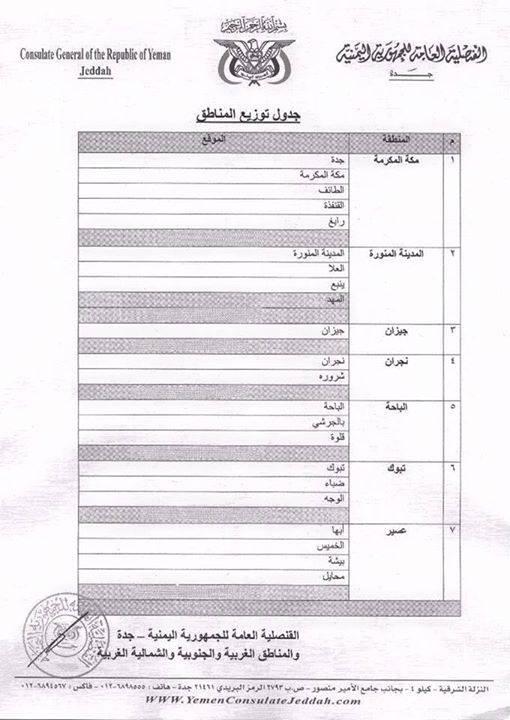 Consulate General of the Republic of Yemen
Jeddah
القنصلية العامة للجمهورية اليمنية
جدة
جدول توزيع المناطق
م المنطقة الموقع
١ مكة المكرمة جدة
مكة المكرمة
الطائف
القنفذة
رابغ
٢ المدينة المنورة المدينة المنورة
العلا
ينبع
المهد
٣ جيزان جيزان
٤ نجران نجران
شروره
٥ الباحة الباحة
بالجرشي
قلوة
٦ تبوك تبوك
ضباء
الوجه
٧ عسير أبها
الخميس
بيشة
محايل
القنصلية العامة للجمهورية اليمنية – جدة
والمناطق الغربية والجنوبية والشمالية الغربية
النزلة الشرقية - كيلو ٤ - بجانب جامع الأمير منصور - ص.ب ٢٧٩٣ الرمز البريدي ٢١٤٦١ جدة - هاتف : ٦٨٩٨٥٥٥-٠١٢ - فاكس : ٦٨٩٤٥٦٧-٠١٢
WWW.YemenConsulateJeddah.com